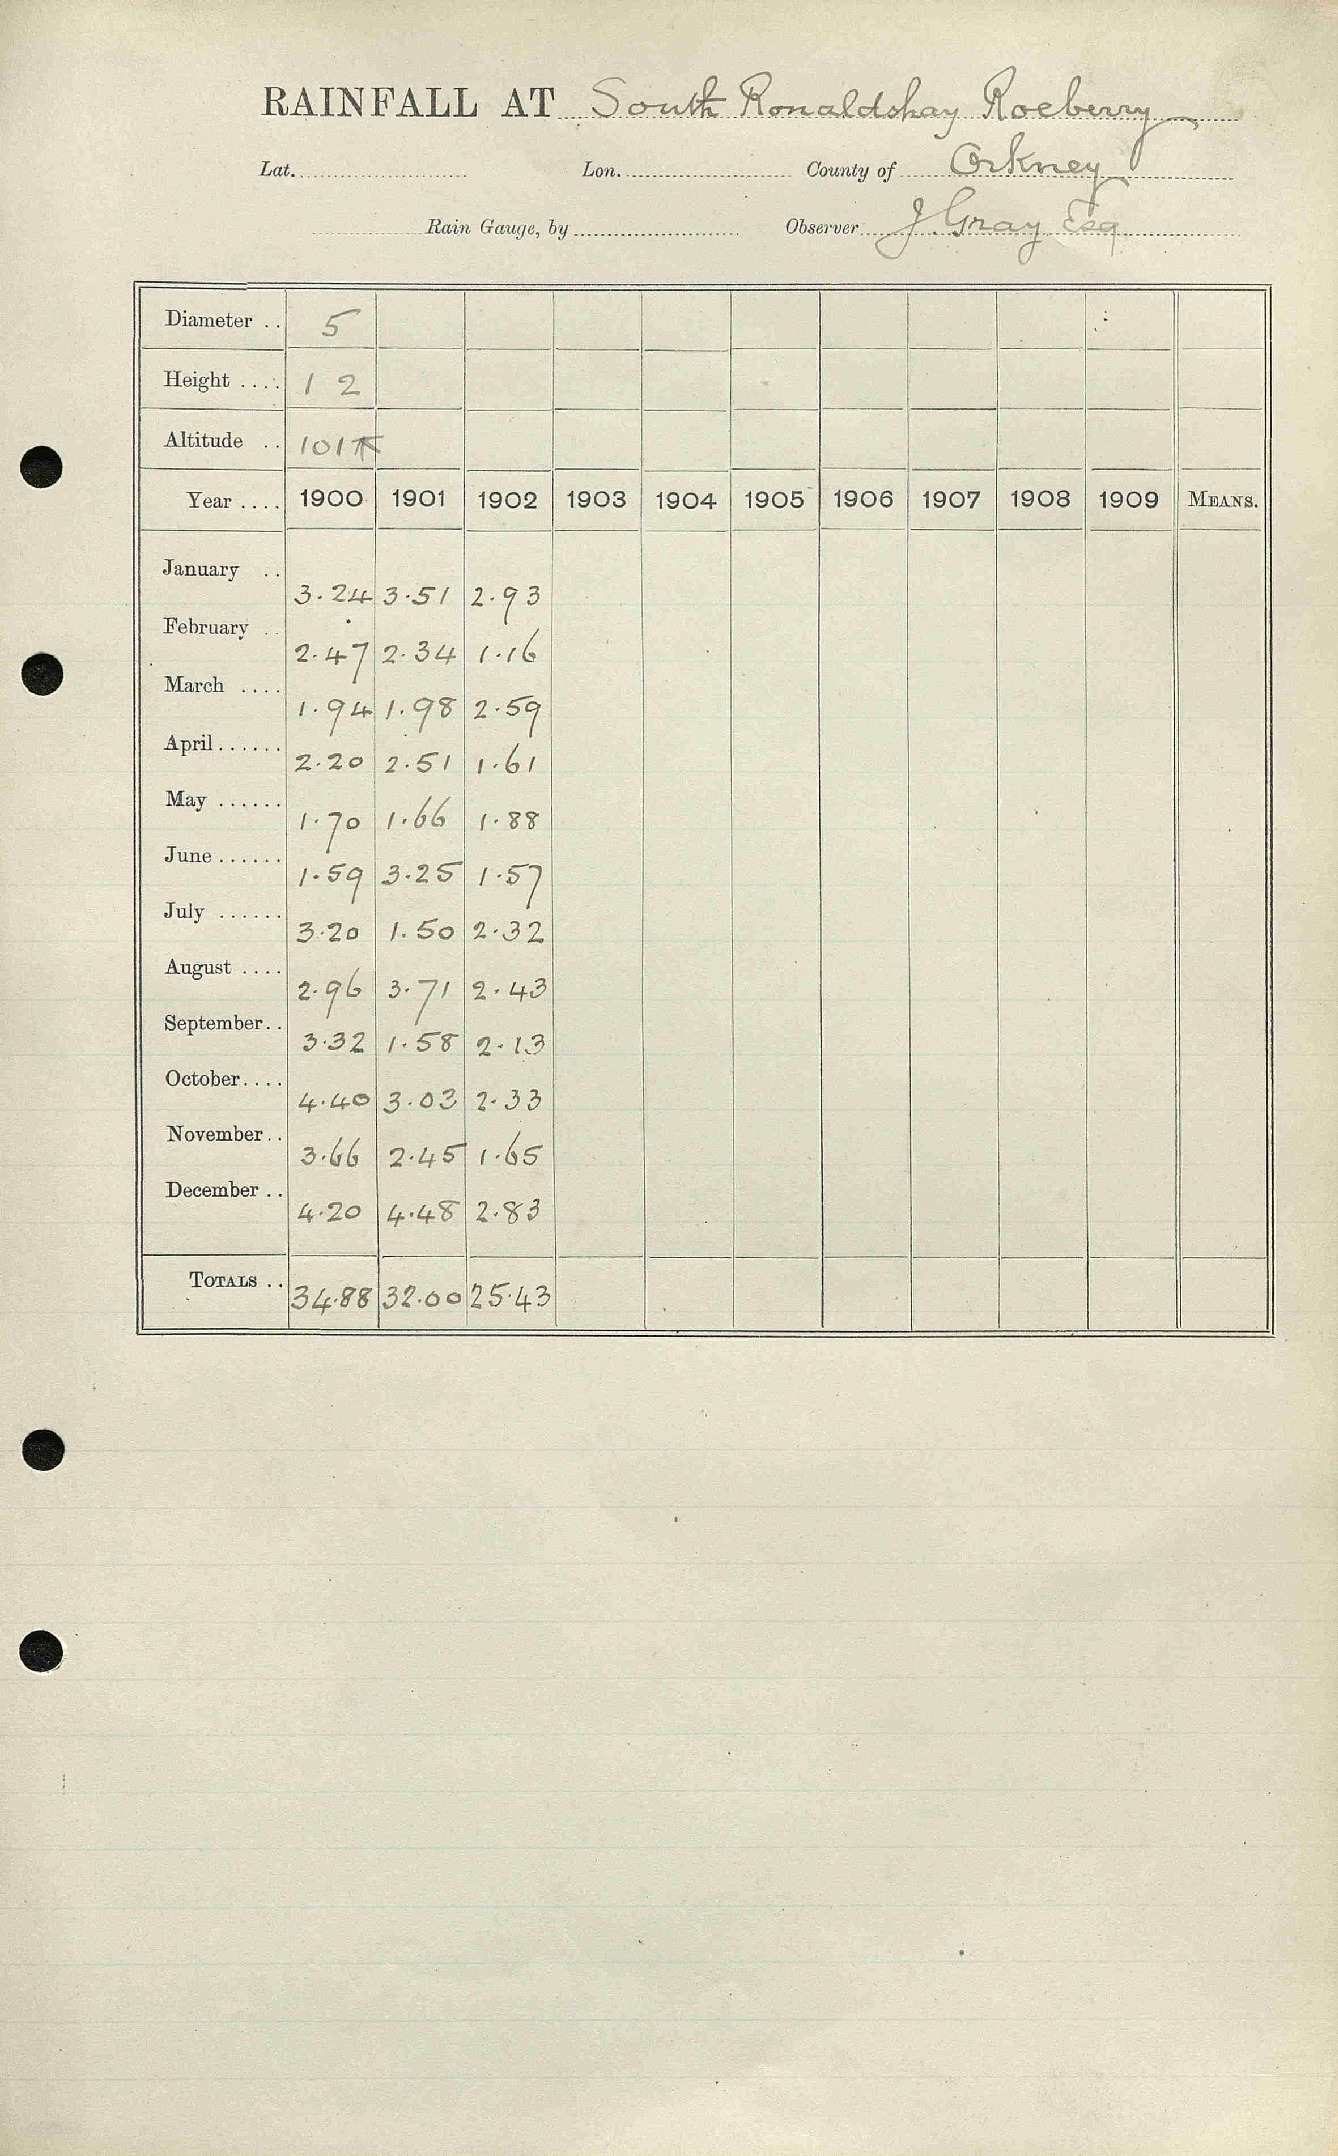 RAINFALL AT South Ronaldshay Roeberry
Lat. Lon. County of Orkney
Rain Gauge, by Observer J. Gray Esq
Diameter .. 5
Height .... 1 2
Altitude .. 101 ft
Year .... 1900 1901 1902 1903 1904 1905 1906 1907 1908 1909 MEANS.
January .. 3.24 3.51 2.93
February .. 2.47 2.34 1.16
March .... 1.94 1.98 2.59
April...... 2.20 2.51 1.61
May ...... 1.70 1.66 1.88
June ...... 1.59 3.25 1.57
July ...... 3.20 1.50 2.32
August .... 2.96 3.71 2.43
September.. 3.32 1.58 2.13
October.... 4.40 3.03 2.33
November.. 3.66 2.45 1.65
December .. 4.20 4.48 2.83
TOTALS .. 34.88 32.00 25.43